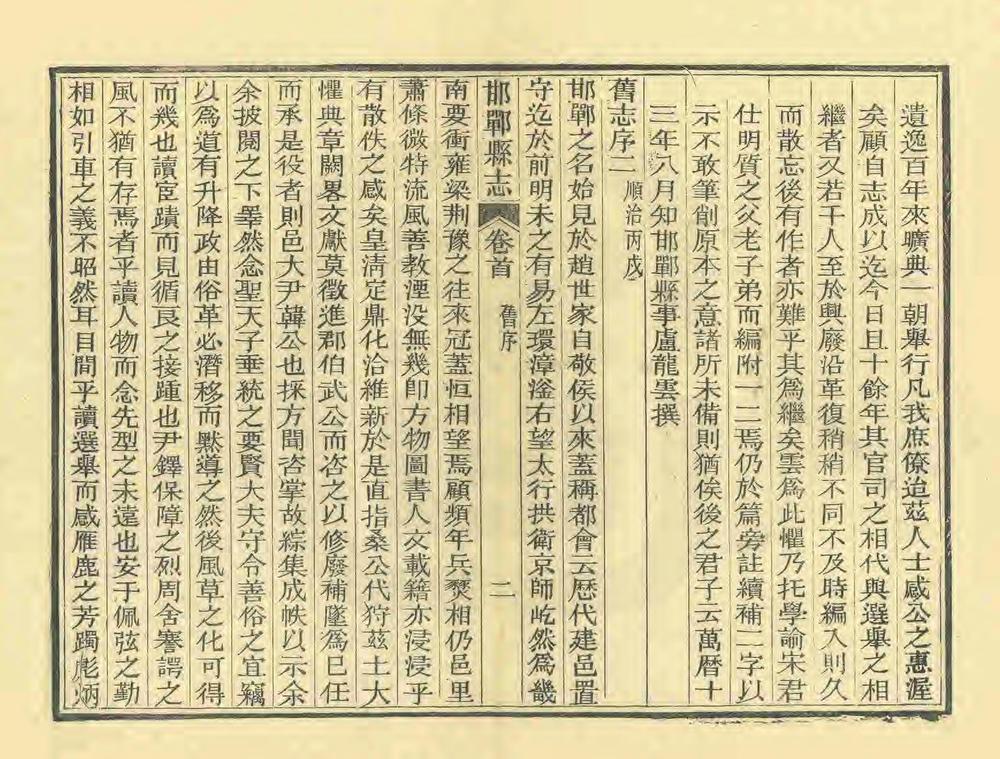 遺逸百年來曠典一朝舉行凡我庶僚迨茲人士感公之惠渥
矣顧自志成以迄今日且十餘年其官司之相代與選舉之相
繼者又若干人至於興廢沿革復稍稍不同不及時編入則久
而散忘後有作者亦難乎其爲繼矣雲爲此懼乃托學諭宋君
仕明質之父老子弟而編附一二焉仍於篇旁註續補二字以
示不敢筆削原本之意諸所未備則猶俟後之君子云萬曆十
三年八月知邯鄲縣事盧龍雲撰
舊志序二 順治丙戌
邯鄲之名始見於趙世家自敬侯以來蓋稱都會云歷代建邑置
守迄於前明未之有易左環漳滏右望太行拱衛京師屹然爲畿
邯鄲縣志 卷首 舊序 二
南要衝雍梁荆豫之往來冠蓋恒相望焉顧頻年兵燹相仍邑里
蕭條微特流風善教湮没無幾卽方物圖書人文載籍亦浸浸乎
有散佚之感矣皇淸定鼎化洽維新於是直指桑公代狩茲土大
懼典章闕畧文獻莫徵進郡伯武公而咨之以修廢補墜爲已任
而承是役者則邑大尹韓公也採方聞咨掌故綜集成帙以示余
余披閱之下睾然念聖天子垂統之要賢大夫守令善俗之宜竊
以爲道有升降政由俗革必潛移而默導之然後風草之化可得
而幾也讀宦蹟而見循良之接踵也尹鐸保障之烈周舍謇諤之
風不猶有存焉者乎讀人物而念先型之未遠也安于佩弦之勤
相如引車之義不昭然耳目間乎讀選舉而感雁鹿之芳躅彪炳